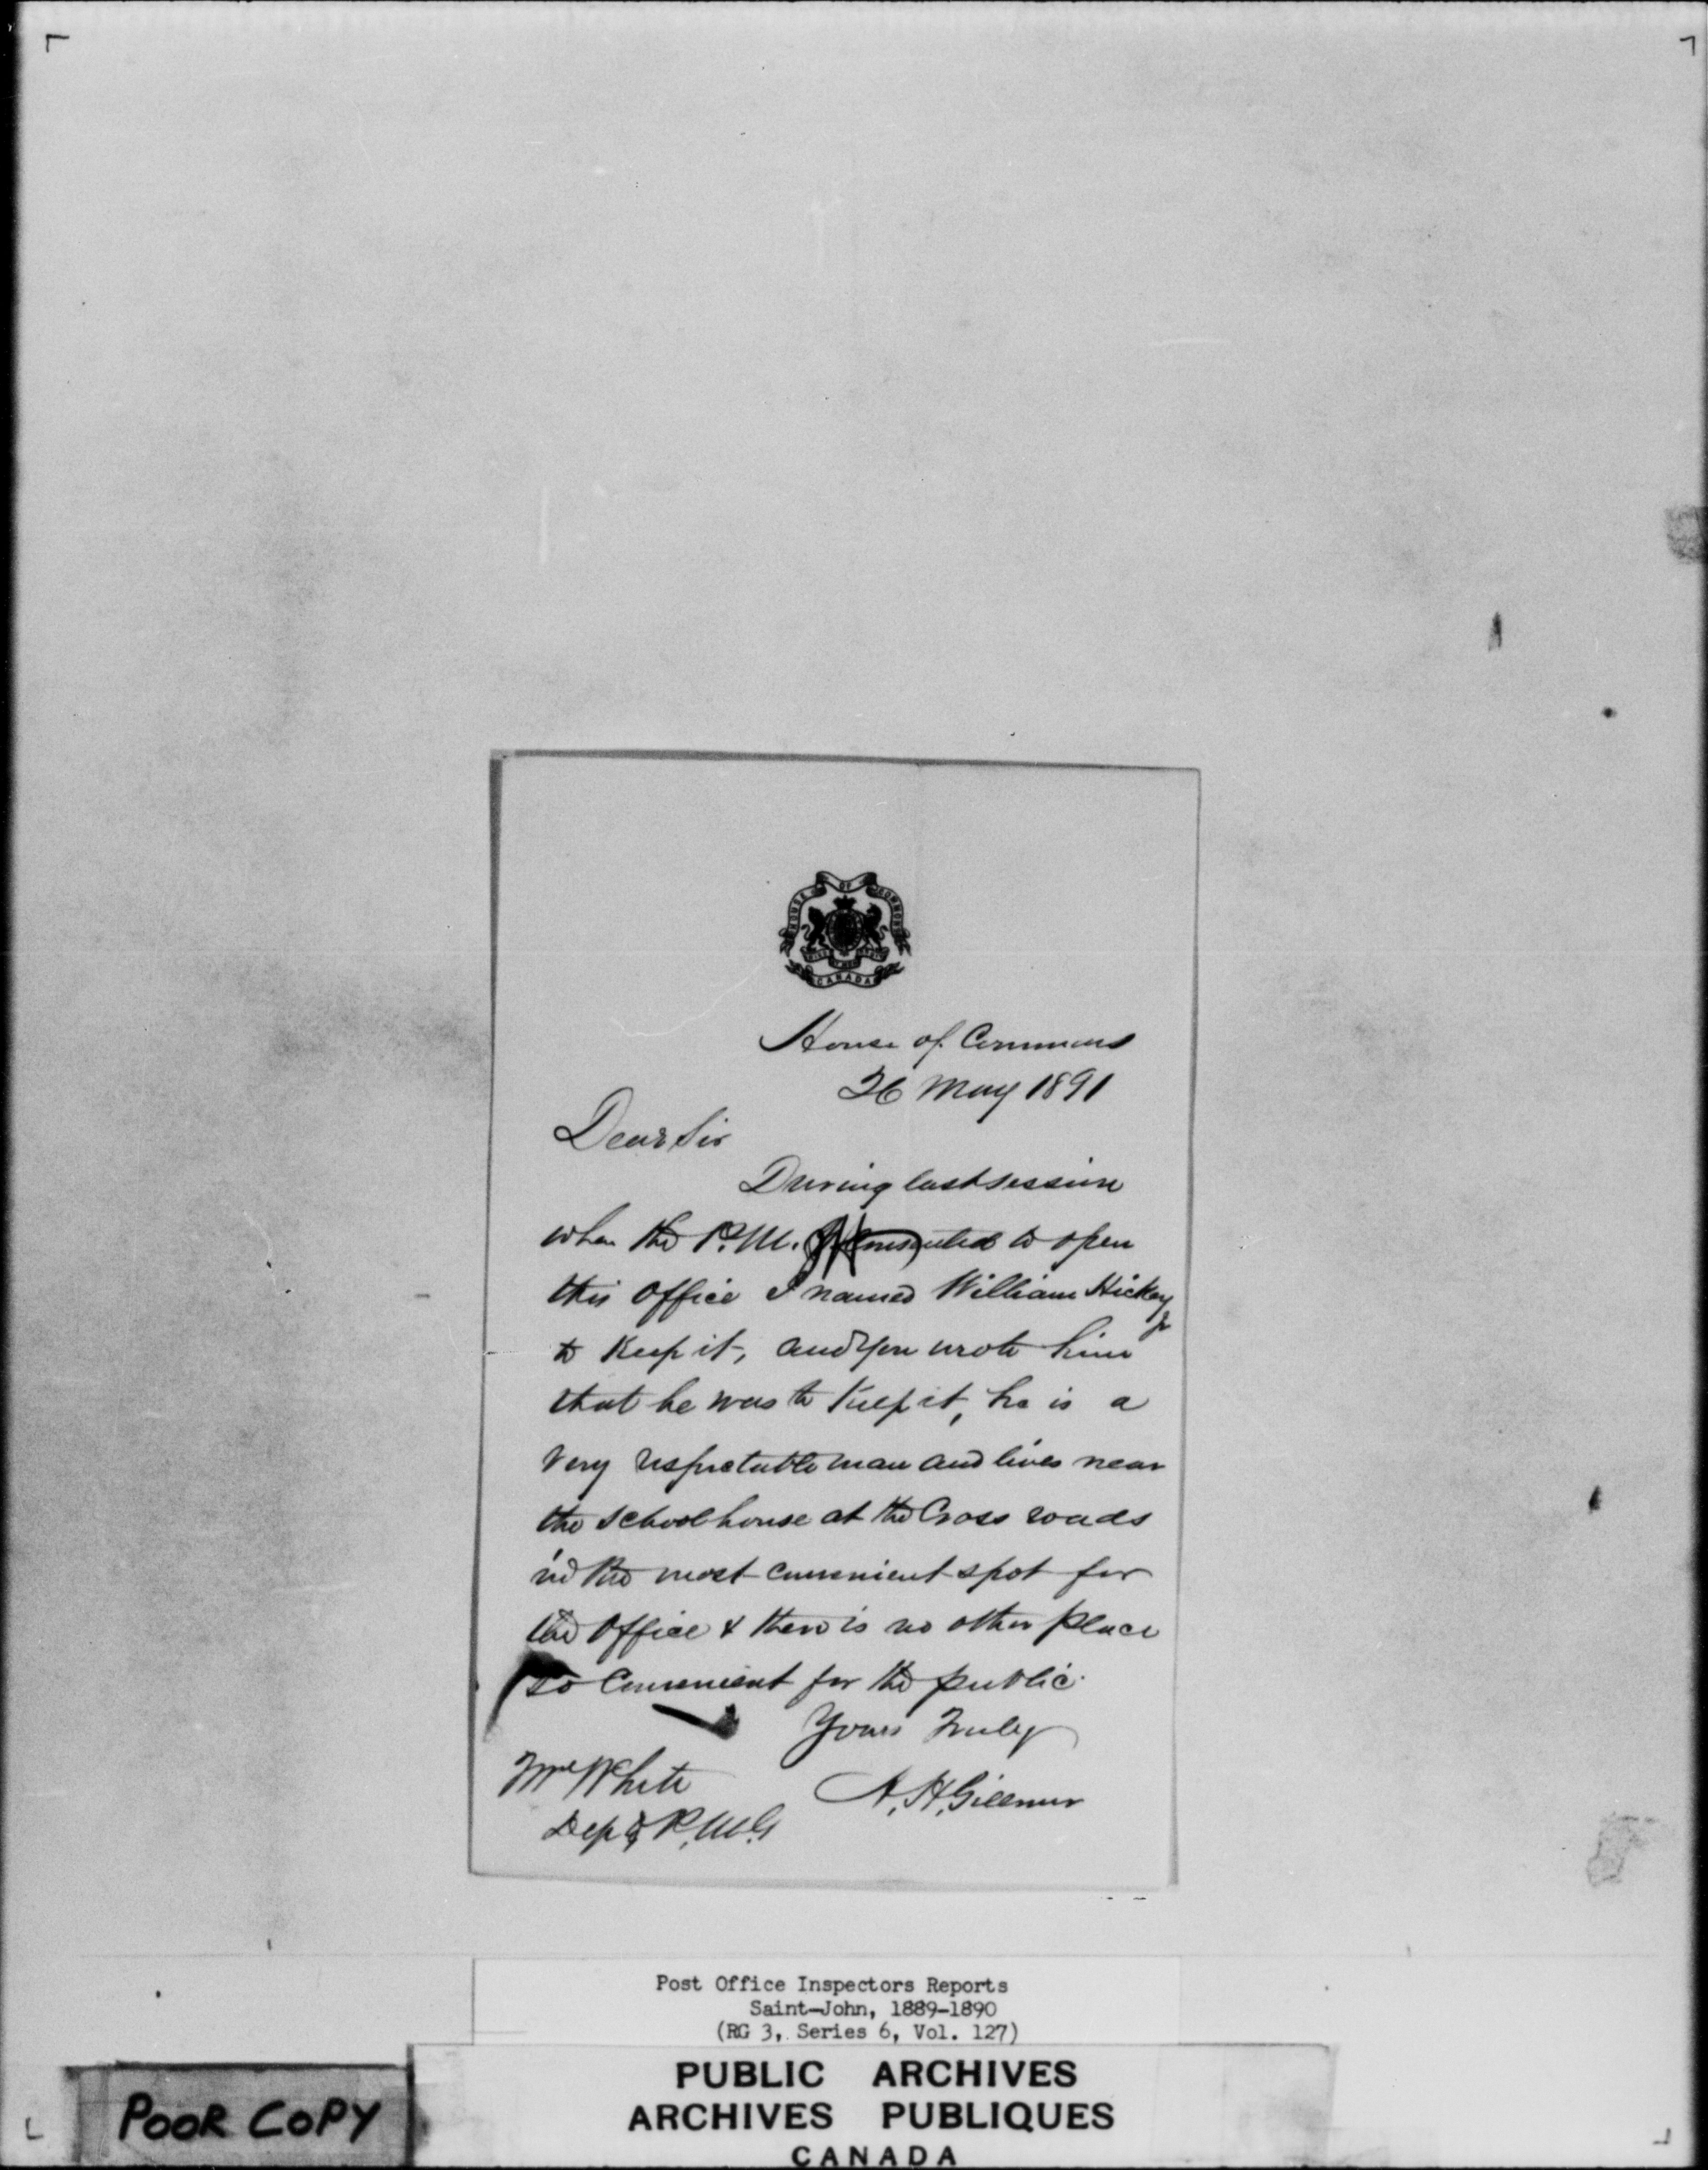 HOUSE OF COMMONS
CANADA
House of Commons
26 May 1891
Dear Sir
During last session
when the P.M. consented to open
this office I named William Hickey
Jr
to Keep it, and you wrote him
that he was to Keep it, he is a
very respectable man and lives near
the school house at the Cross roads
the most convenient spot for
the office & there is no other place
so convenient for the public.
Yours Truly
A. H. Gillmor
Mr White
Dep P.M.G.
Post Office Inspectors Reports
Saint-John, 1889-1890
(RG 3, Series 6, Vol. 127)
PUBLIC ARCHIVES
ARCHIVES PUBLIQUES
CANADA
POOR COPY